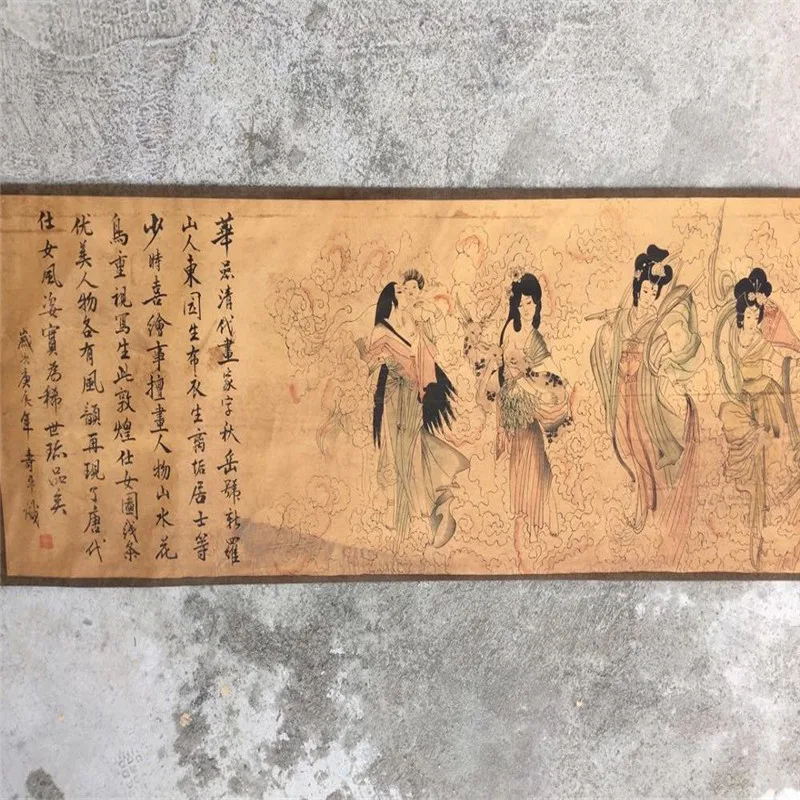 華嵒清代畫家字秋岳號新羅
山人東园生布衣生离垢居士等
少時喜繪事擅畫人物山水花
鳥重視寫生此敦煌仕女圖线条
优美人物各有風韻再現了唐代
仕女風姿實為稀世珎品矣
歲次庚辰年